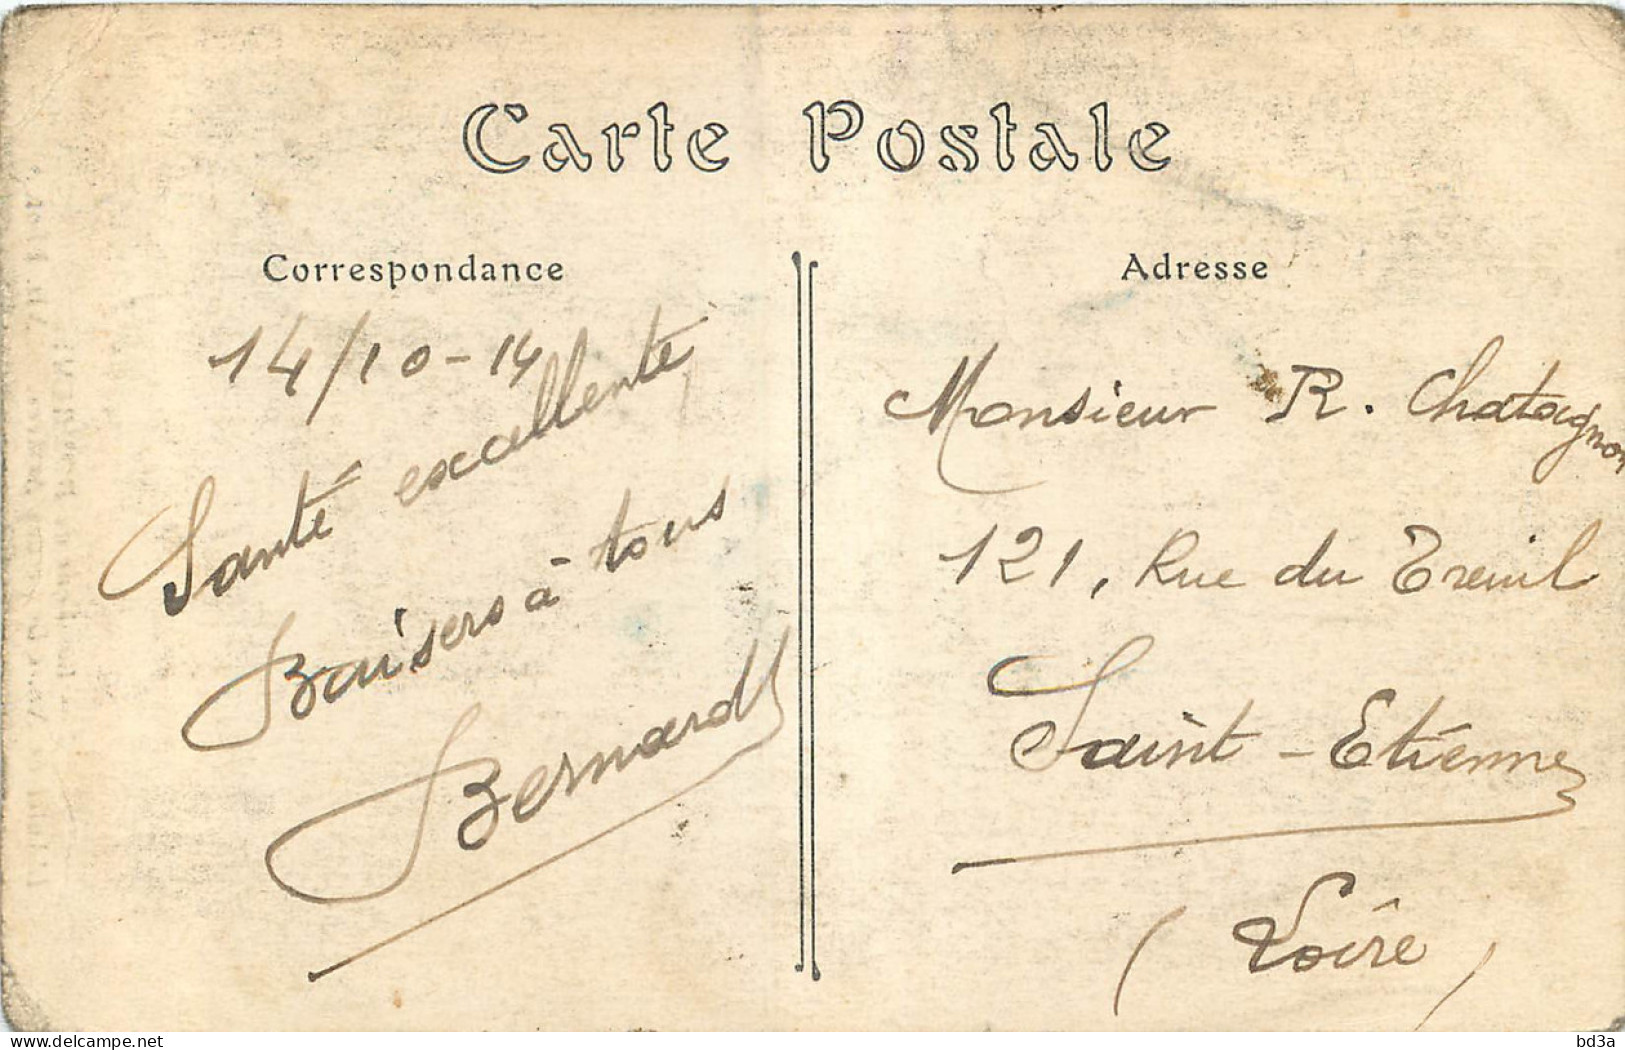 Carte Postale
Correspondance
14/10-14
Santé excellente
Baisers à tous
Bernard
Adresse
Monsieur R. Chatagnon
121, Rue du Treuil
Saint-Etienne
(Loire)
delcampe.net
bd3a